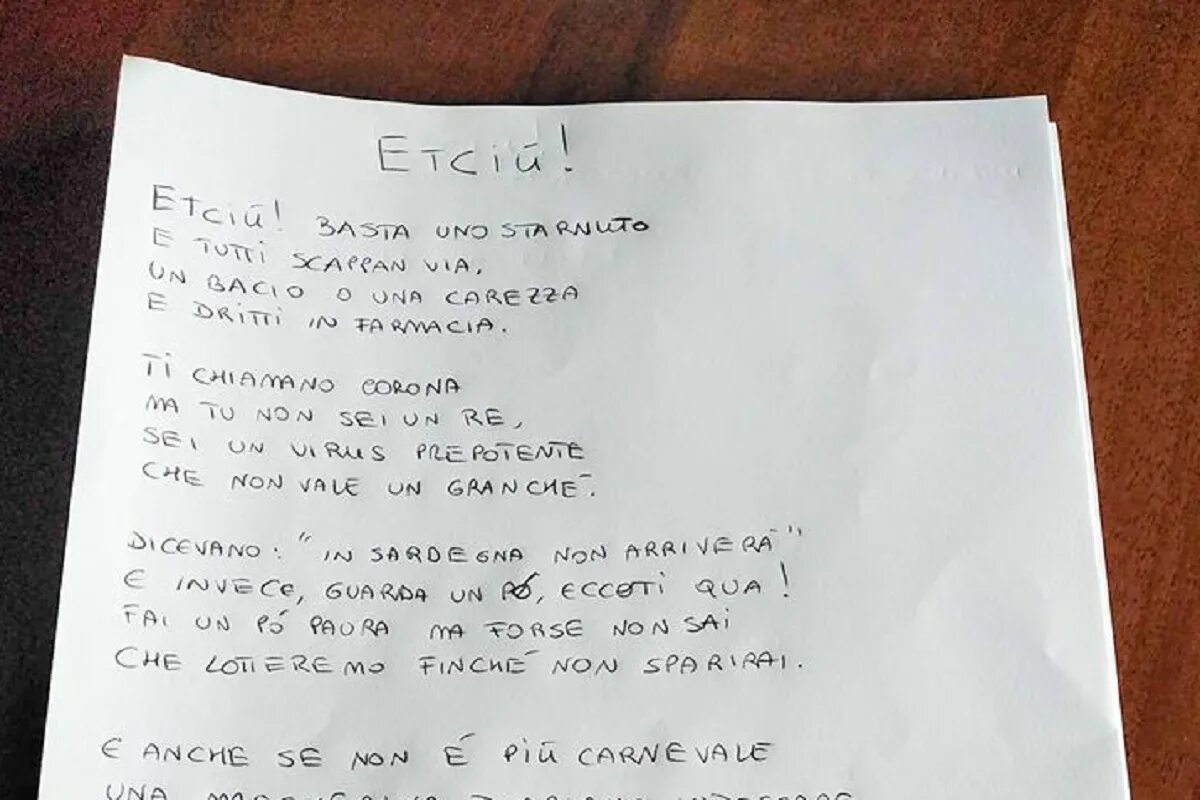 ETCIÚ!
ETCIÚ! BASTA UNO STARNUTO
E TUTTI SCAPPAN VIA,
UN BACIO O UNA CAREZZA
E DRITTI IN FARMACIA.
TI CHIAMANO CORONA
MA TU NON SEI UN RE,
SEI UN VIRUS PREPOTENTE
CHE NON VALE UN GRANCHÉ.
DICEVANO: "IN SARDEGNA NON ARRIVERÀ"
E INVECE, GUARDA UN PÓ, ECCOTI QUA!
FAI UN PÓ PAURA MA FORSE NON SAI
CHE LOTTEREMO FINCHÉ NON SPARIRAI.
E ANCHE SE NON É PIÚ CARNEVALE
UNA